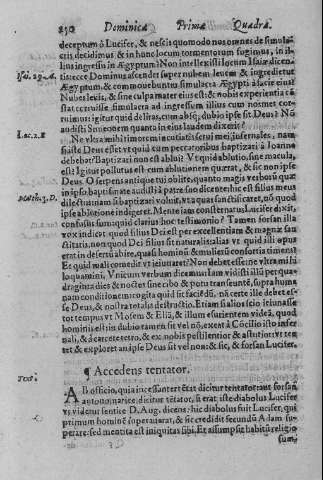 250 Dominicæ Primæ Quadra.
deceptum ô Lucifer, & nescis quomodo nos omnes de simul
cris decidimus & in hunc locum tormentorum fugimus, in il-
lius ingressu in Ægyptum? Non intellexisti locum Isaiæ dicen-
Isai. 19. A.
tis: ecce Dominus ascendet super nubem levem & ingredietur
Ægyptum, & commovebuntur simulacra Ægypti à facie eius?
Nubes levis, & sine culpa mater eius est: & nobis experientia cō-
stat corruisse simulacra ad ingressum illius cum nos met cor-
ruimus: igitur quid deliras, cum absq; dubio ipse sit Deus? Nō
audisti Simeonem quanta in eius laudem dixerit?
Luc. 2. E
Ne vltra mihi timorem incutias socij mei infernales, nam
si iste Deus esset
vt quid cum peccatoribus baptizari à Ioanne
debebat? Baptizari non est abluī? Vt quid ablutio, sine macula,
est? Igitur pollutus est cum ablutionem quærat, & sic non ipse
Deus. O serpens antique tibi obsto, quanto magis verbo
in ipso baptismate audisti à patre suo dicente: hic est filius meus
Math. 3. D.
dilectus
baptizari voluit, vt aquas sanctificaret, nō quod
ipse ablutione indigeret. Mente iam consternatus Lucifer dixit,
confusus sum: quid clarius hoc testimonio? Tamen forsan illa
vox indicat quod filius Dei est per excellentiam & magnā san-
ctitatē, non quod Dei filius sit naturalis: alias vt quid illi opus
erat in deserto abire, quasi hominē & mulierū consortia timens?
Et quid mali comedit vt ieiunaret? Non debet esse sic vltra mihi
loquamini, Vnicum verbum dicemus: Iam vidisti illū per qua-
draginta dies & noctes sine cibo & potu transeuntē, supra huma
nam conditionem: rogita quid sic faciēdū, nā certe ille debet es-
se Deus, & nostra total
destructio. Etiam si alios scio ieiunasse
tot tempus vt Mosem & Eliā, & illum esurientem videā, quod
hominis est: his dubio tamen sit vel nō, exeat à Cōcilio isto infer
nali, & à carcere tetro, & ex nobis pestilentior & astutior: vt ten
tet & exploret an ipse Deus sit vel non: & sic, & forsan Lucifer.
¶ Accedens tentator.
Text.
Ab officio, quia incessanter tētat dicitur tentator: aut forsan,
autonomaticè dicitur tētator, si erat iste diabolus Lucifer
vt videtur sentire D. Aug. dicens: hic diabolus fuit Lucifer, qui
primum hominē superauerat, & sic credidit secundū Adam su-
perare: sed mentita est iniquitas sibi. Et assumpsit habitū religio
sum,